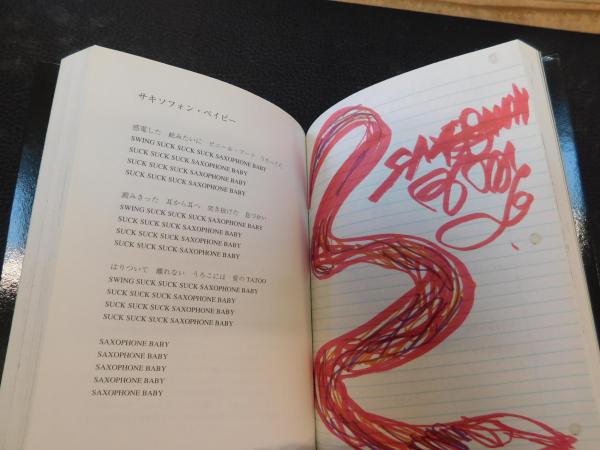 サキソフォン・ベイビー
感電した 蛇みたいに ビニール・コード うねってる
SWING SUCK SUCK SUCK SAXOPHONE BABY
SUCK SUCK SUCK SAXOPHONE BABY
SUCK SUCK SUCK SAXOPHONE BABY
SUCK SUCK SUCK SAXOPHONE BABY
澱みきった 耳から耳へ 突き抜けた 息づかい
SWING SUCK SUCK SUCK SAXOPHONE BABY
SUCK SUCK SUCK SAXOPHONE BABY
SUCK SUCK SUCK SAXOPHONE BABY
SUCK SUCK SUCK SAXOPHONE BABY
はりついて 離れない うろこには 愛の TATOO
SWING SUCK SUCK SUCK SAXOPHONE BABY
SUCK SUCK SUCK SAXOPHONE BABY
SUCK SUCK SUCK SAXOPHONE BABY
SUCK SUCK SUCK SAXOPHONE BABY
SAXOPHONE BABY
SAXOPHONE BABY
SAXOPHONE BABY
SAXOPHONE BABY
SAXOPHONE BABY